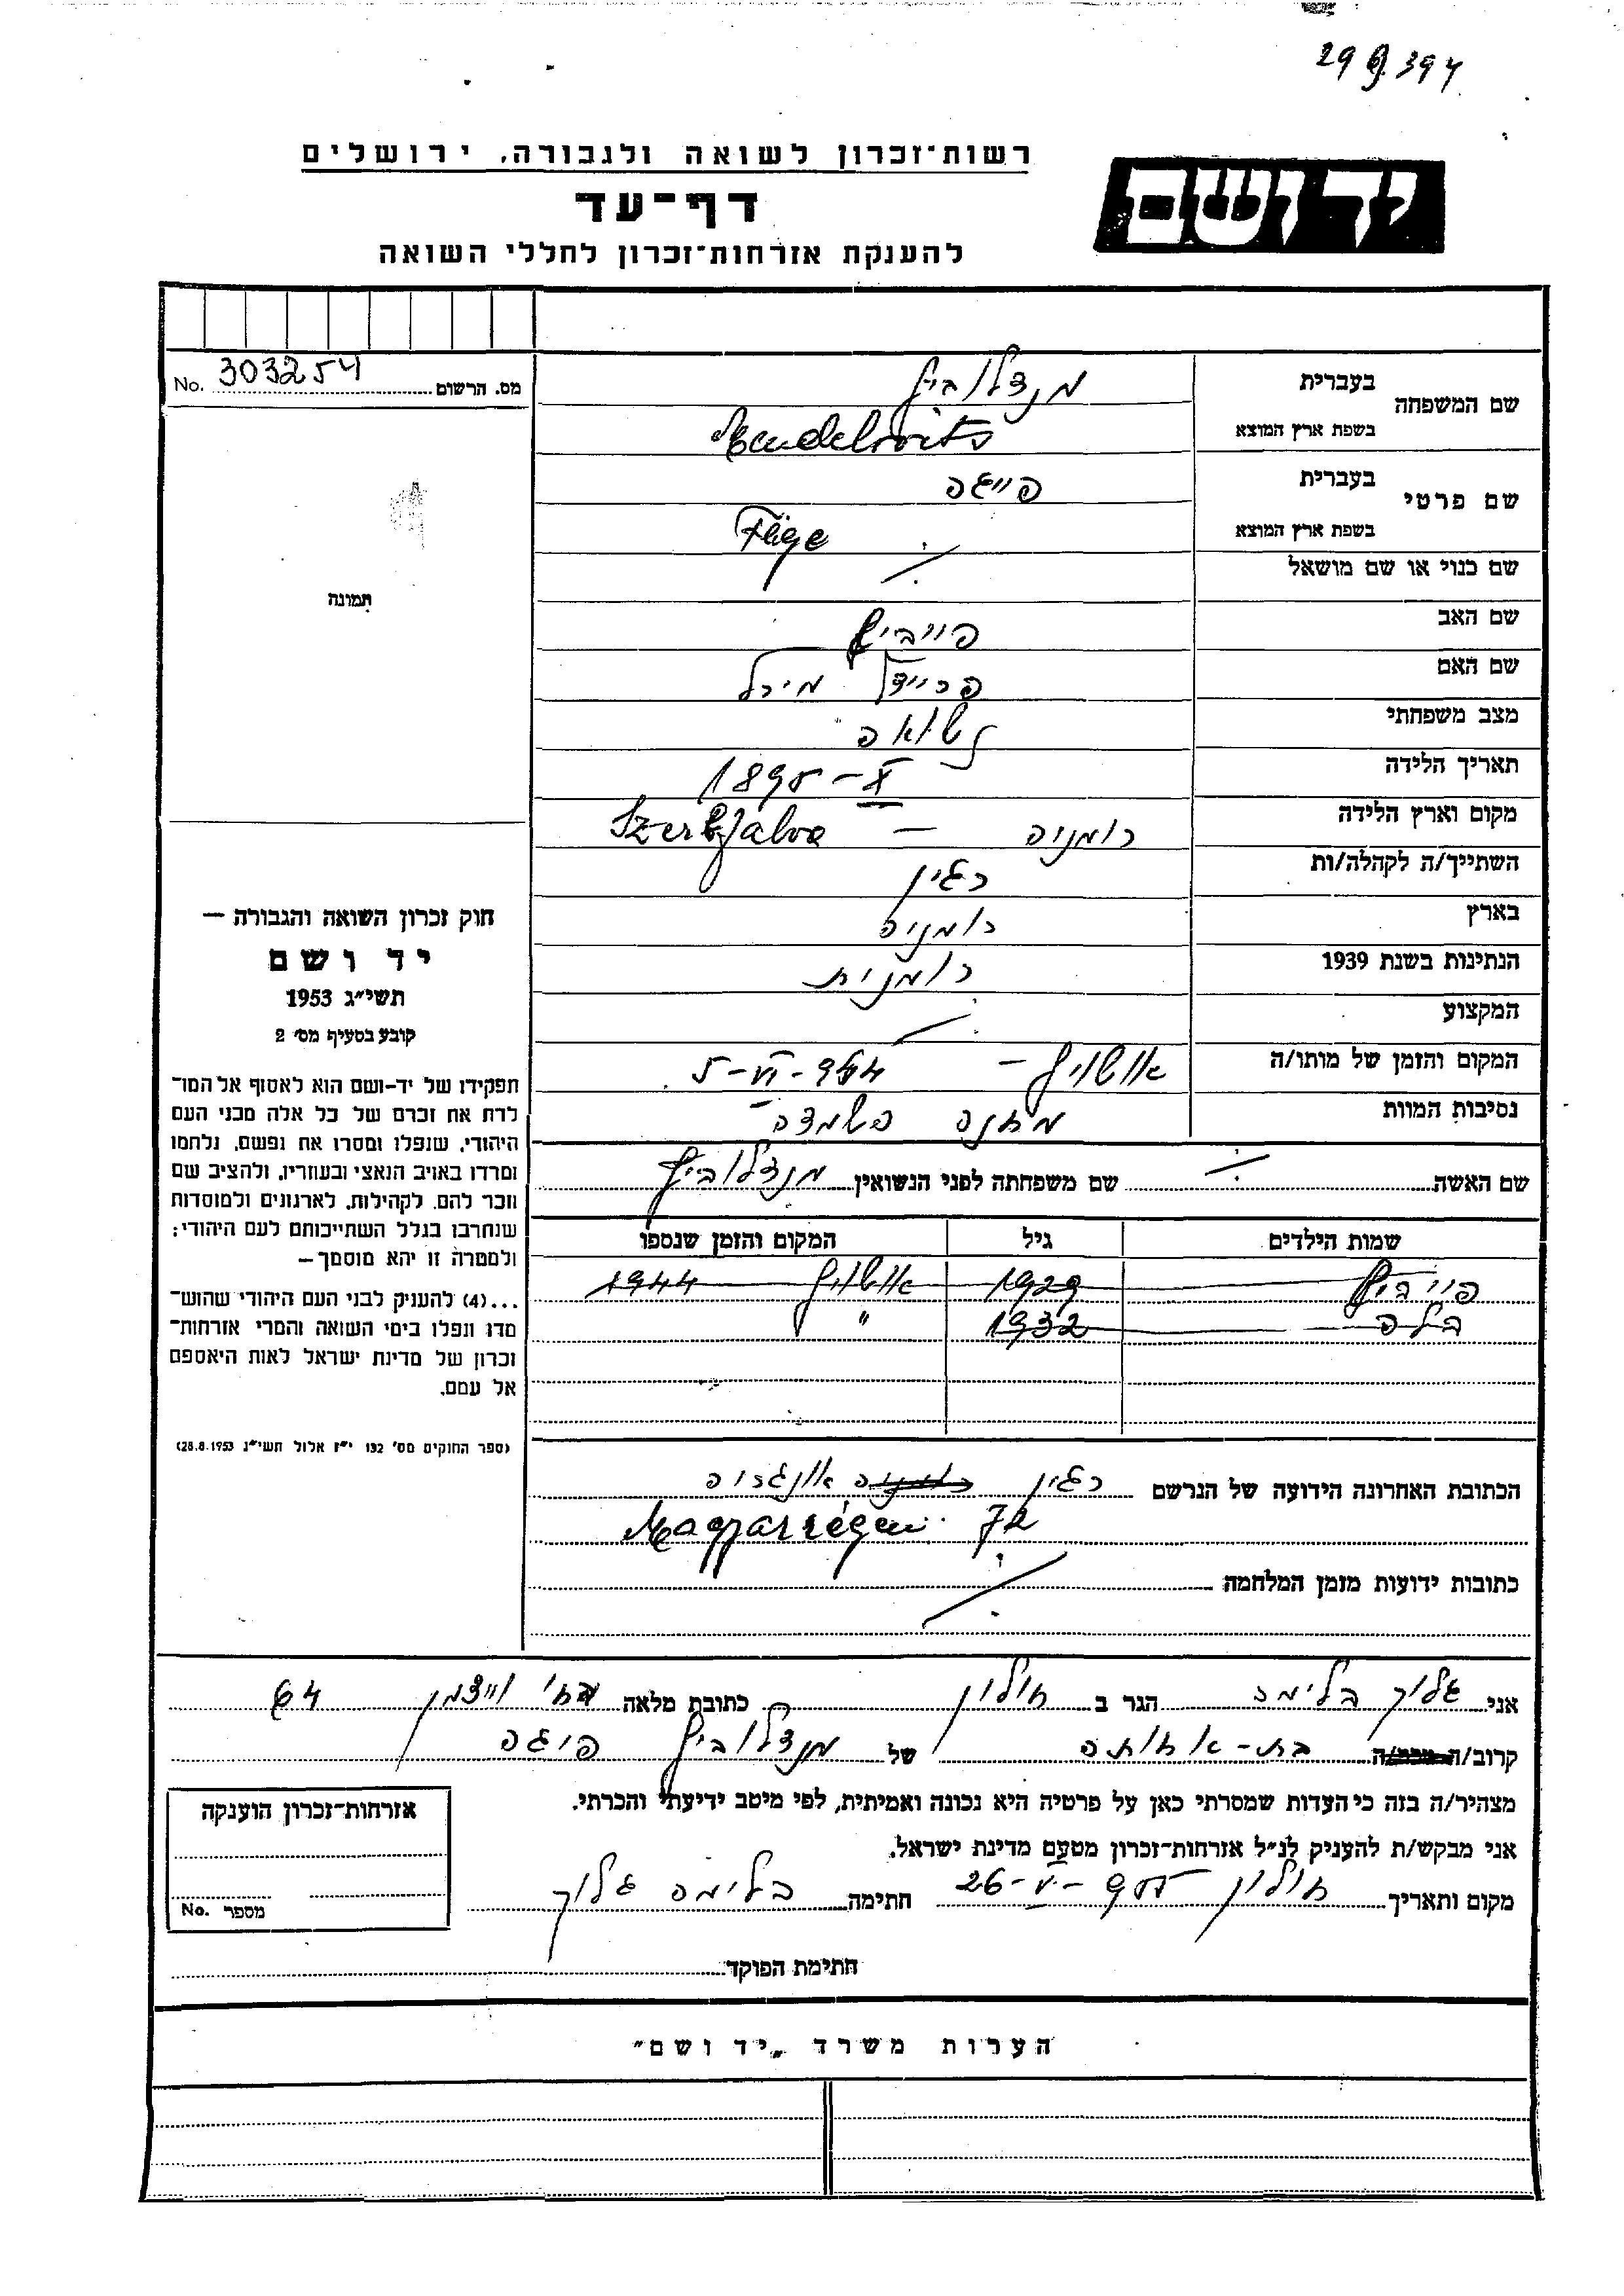 29 9. 394
רשות־זכרון לשואה ולגבורה, ירושלים
יד ושם
דף־עד
להענקת אזרחות־זכרון לחללי השואה
מס. הרשום 303254 No.
שם המשפחה בעברית מנדלוביץ
בשפת ארץ המוצא Mendelovits
שם פרטי בעברית פייגה
בשפת ארץ המוצא Fäge
שם כנוי או שם מושאל ⁒
תמונה
שם האב פייביש
שם האם פריידל מירל
מצב משפחתי נשואה
תאריך הלידה 1895 – X
מקום וארץ הלידה רומניה –
השתייך/ה לקהלה/ות רגין
בארץ רומניה
הנתינות בשנת 1939 רומנית
המקצוע ⁒
המקום והזמן של מותו/ה אושויץ – 5-VI-944
נסיבות המוות מחנה השמדה
שם האשה ⁒ שם משפחתה לפני הנשואין מנדלוביץ
שמות הילדים גיל המקום והזמן שנספו
פייביש 1929 אושויץ 1944
בלה 1932 "
חוק זכרון השואה והגבורה —
יד ושם
תשי״ג 1953
קובע בסעיף מס׳ 2
תפקידו של יד-ושם הוא לאסוף אל המו־
לדת את זכרם של כל אלה מבני העם
היהודי, שנפלו ומסרו את נפשם, נלחמו
ומרדו באויב הנאצי ובעוזריו, ולהציב שם
וזכר להם, לקהילות, לארגונים ולמוסדות
שנחרבו בגלל השתייכותם לעם היהודי;
ולמטרה זו יהא מוסמך—
...(4) להעניק לבני העם היהודי שהוש־
מדו ונפלו בימי השואה והמרי אזרחות־
זכרון של מדינת ישראל לאות היאספם
אל עמם.
(ספר החוקים מס׳ 132 י״ז אלול תשי״ג 28.8.1953)
הכתובת האחרונה הידועה של הנרשם רגין רומניה אונגריה
Magyarrégen 72
כתובות ידועות מזמן המלחמה ⁒
אני גלוך בלימה הגר ב חולון כתובת מלאה רח׳ וייצמן 64
קרוב/ה מכר/ה בת-אחותה של מנדלוביץ פיגה
מצהיר/ה בזה כי העדות שמסרתי כאן על פרטיה היא נכונה ואמיתית, לפי מיטב ידיעתי והכרתי.
אני מבקש/ת להעניק לנ״ל אזרחות־זכרון מטעם מדינת ישראל.
מקום ותאריך חולון 26-V-955 חתימה בלימה גלוך
חתימת הפוקד
אזרחות־זכרון הוענקה
מספר No.
הערות משרד „יד ושם״